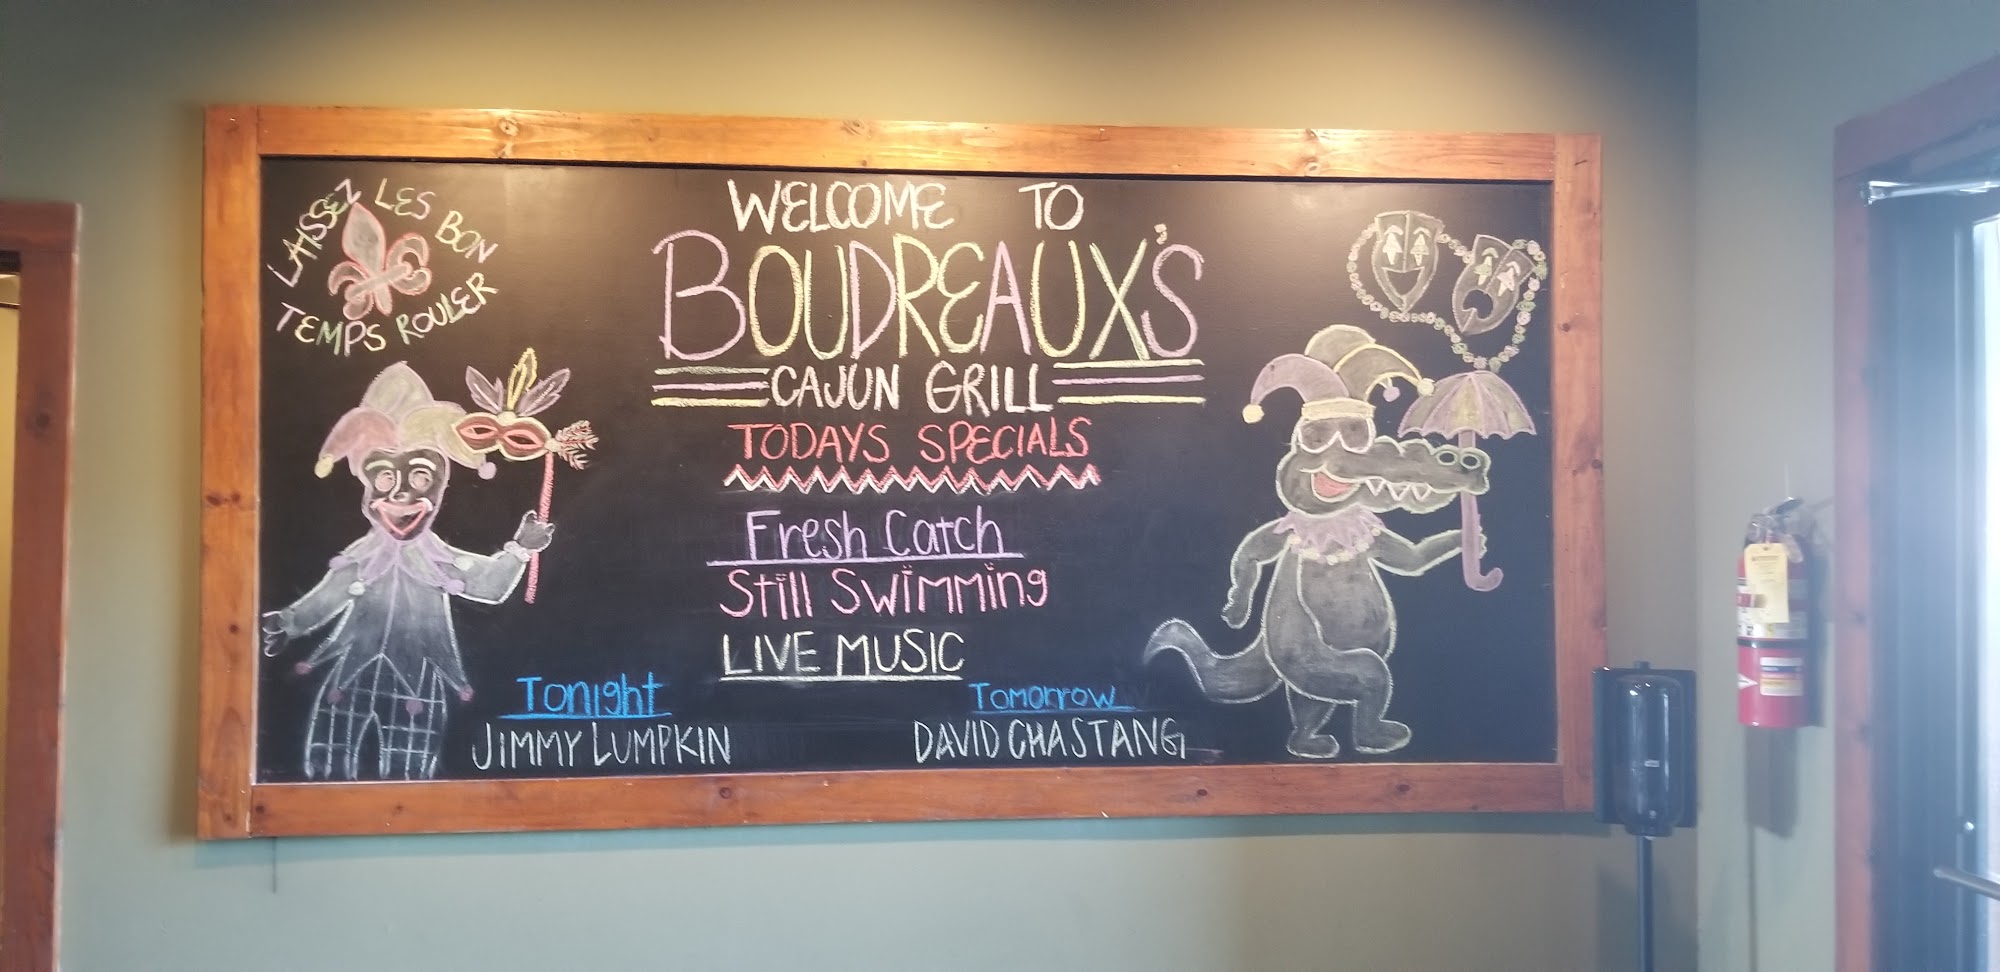 LAISSEZ LES BON
TEMPS ROULER
WELCOME TO
BOUDREAUX'S
CAJUN GRILL
TODAYS SPECIALS
Fresh Catch
Still Swimming
LIVE MUSIC
Tonight
JIMMY LUMPKIN
Tomorrow
DAVID CHASTANG